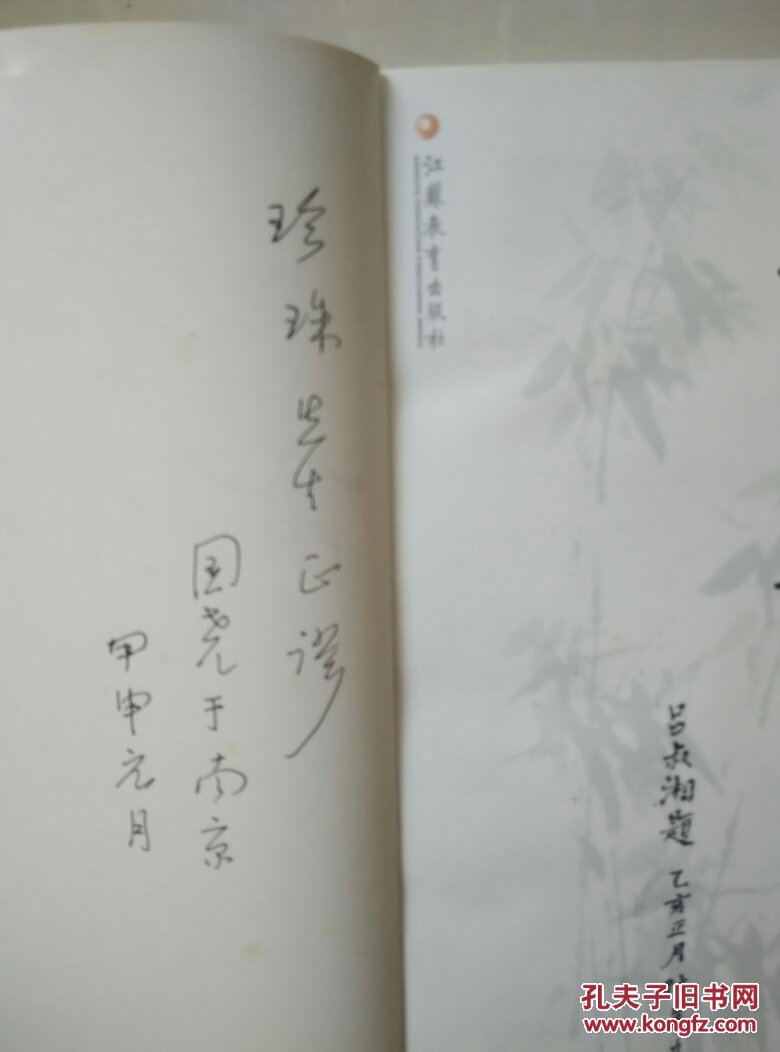 珍珠先生正谬
国尧于南京
甲申元月
江苏教育出版社
吕叔湘题 乙亥正月
孔夫子旧书网
www.kongfz.com